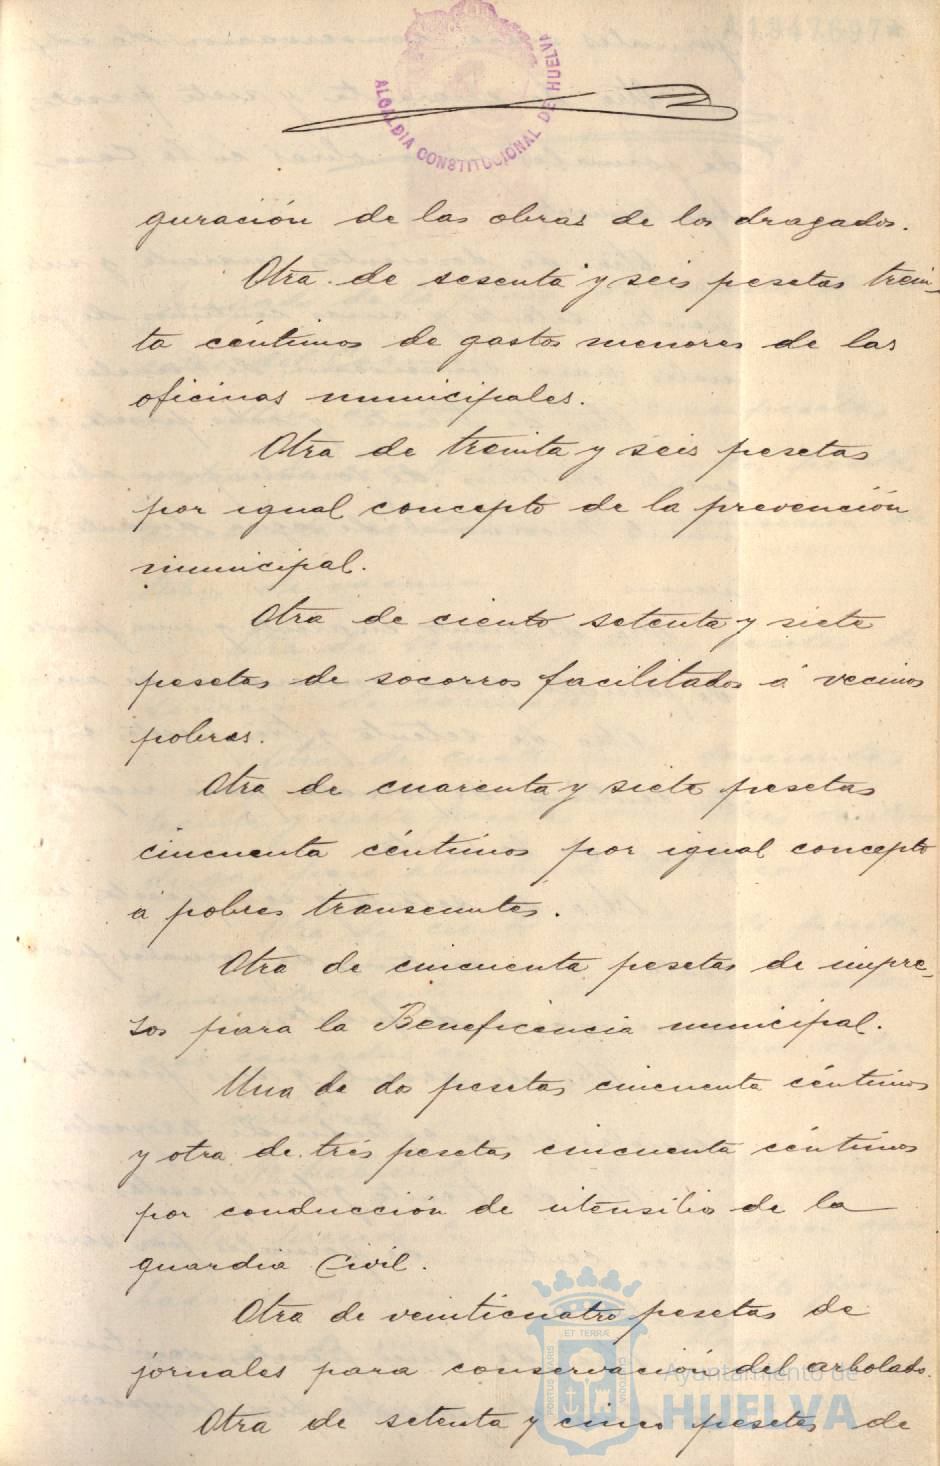 ALCALDIA CONSTITUCIONAL DE HUELVA
guración de las obras de los dragados.
Otra de sesenta y seis pesetas trein-
ta céntimos de gastos menores de las
oficinas municipales.
Otra de treinta y seis pesetas
por igual concepto de la prevención
municipal.
Otra de ciento setenta y siete
pesetas de socorros facilitados á vecinos
pobres.
Otra de cuarenta y siete pesetas
cincuenta céntimos por igual concepto
á pobres transeuntes.
Otra de cincuenta pesetas de impre-
sos para la Beneficencia municipal.
Una de dos pesetas cincuenta céntimos
y otra de tres pesetas cincuenta céntimos
por conducción de utensilio de la
guardia Civil.
Otra de veinticuatro pesetas de
jornales para conservación del arbolado.
Otra de setenta y cinco pesetas de
PORTUS MARIS ET TERRÆ CUSTODIA
Ayuntamiento de
HUELVA